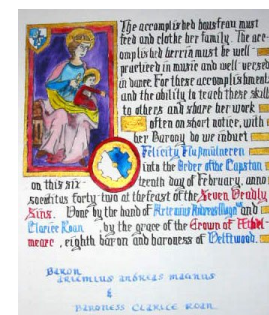 The accomplished hausfrau must
feed and clothe her family. The acc-
omplished herrin must be well-
practiced in music and well versed
in dance. For these accomplishments,
and the ability to teach these skills
to others and share her work
often on short notice, with
her Barony do we induct
Felicity Flußmülnerin
into the Order of the Capstan
on this six-
teenth day of February, anno
societatus forty two at the feast of the Seven Deadly
Sins. Done by the hand of Artemius Andreas Magnus and
Clarice Roan, by the grace of the Crown of Æthel-
mearc, eighth baron and baroness of Delftwood.
Baron
artemius andreas magnus
&
Baroness Clarice Roan